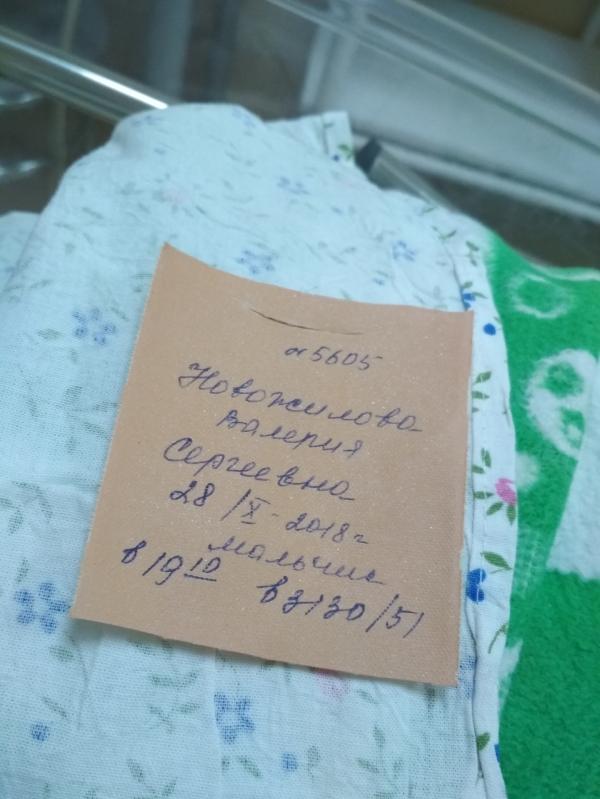 №5605
Новожилова
Валерия
Сергеевна
28/X-2018г
мальчик
в 19 10 в 3130/51